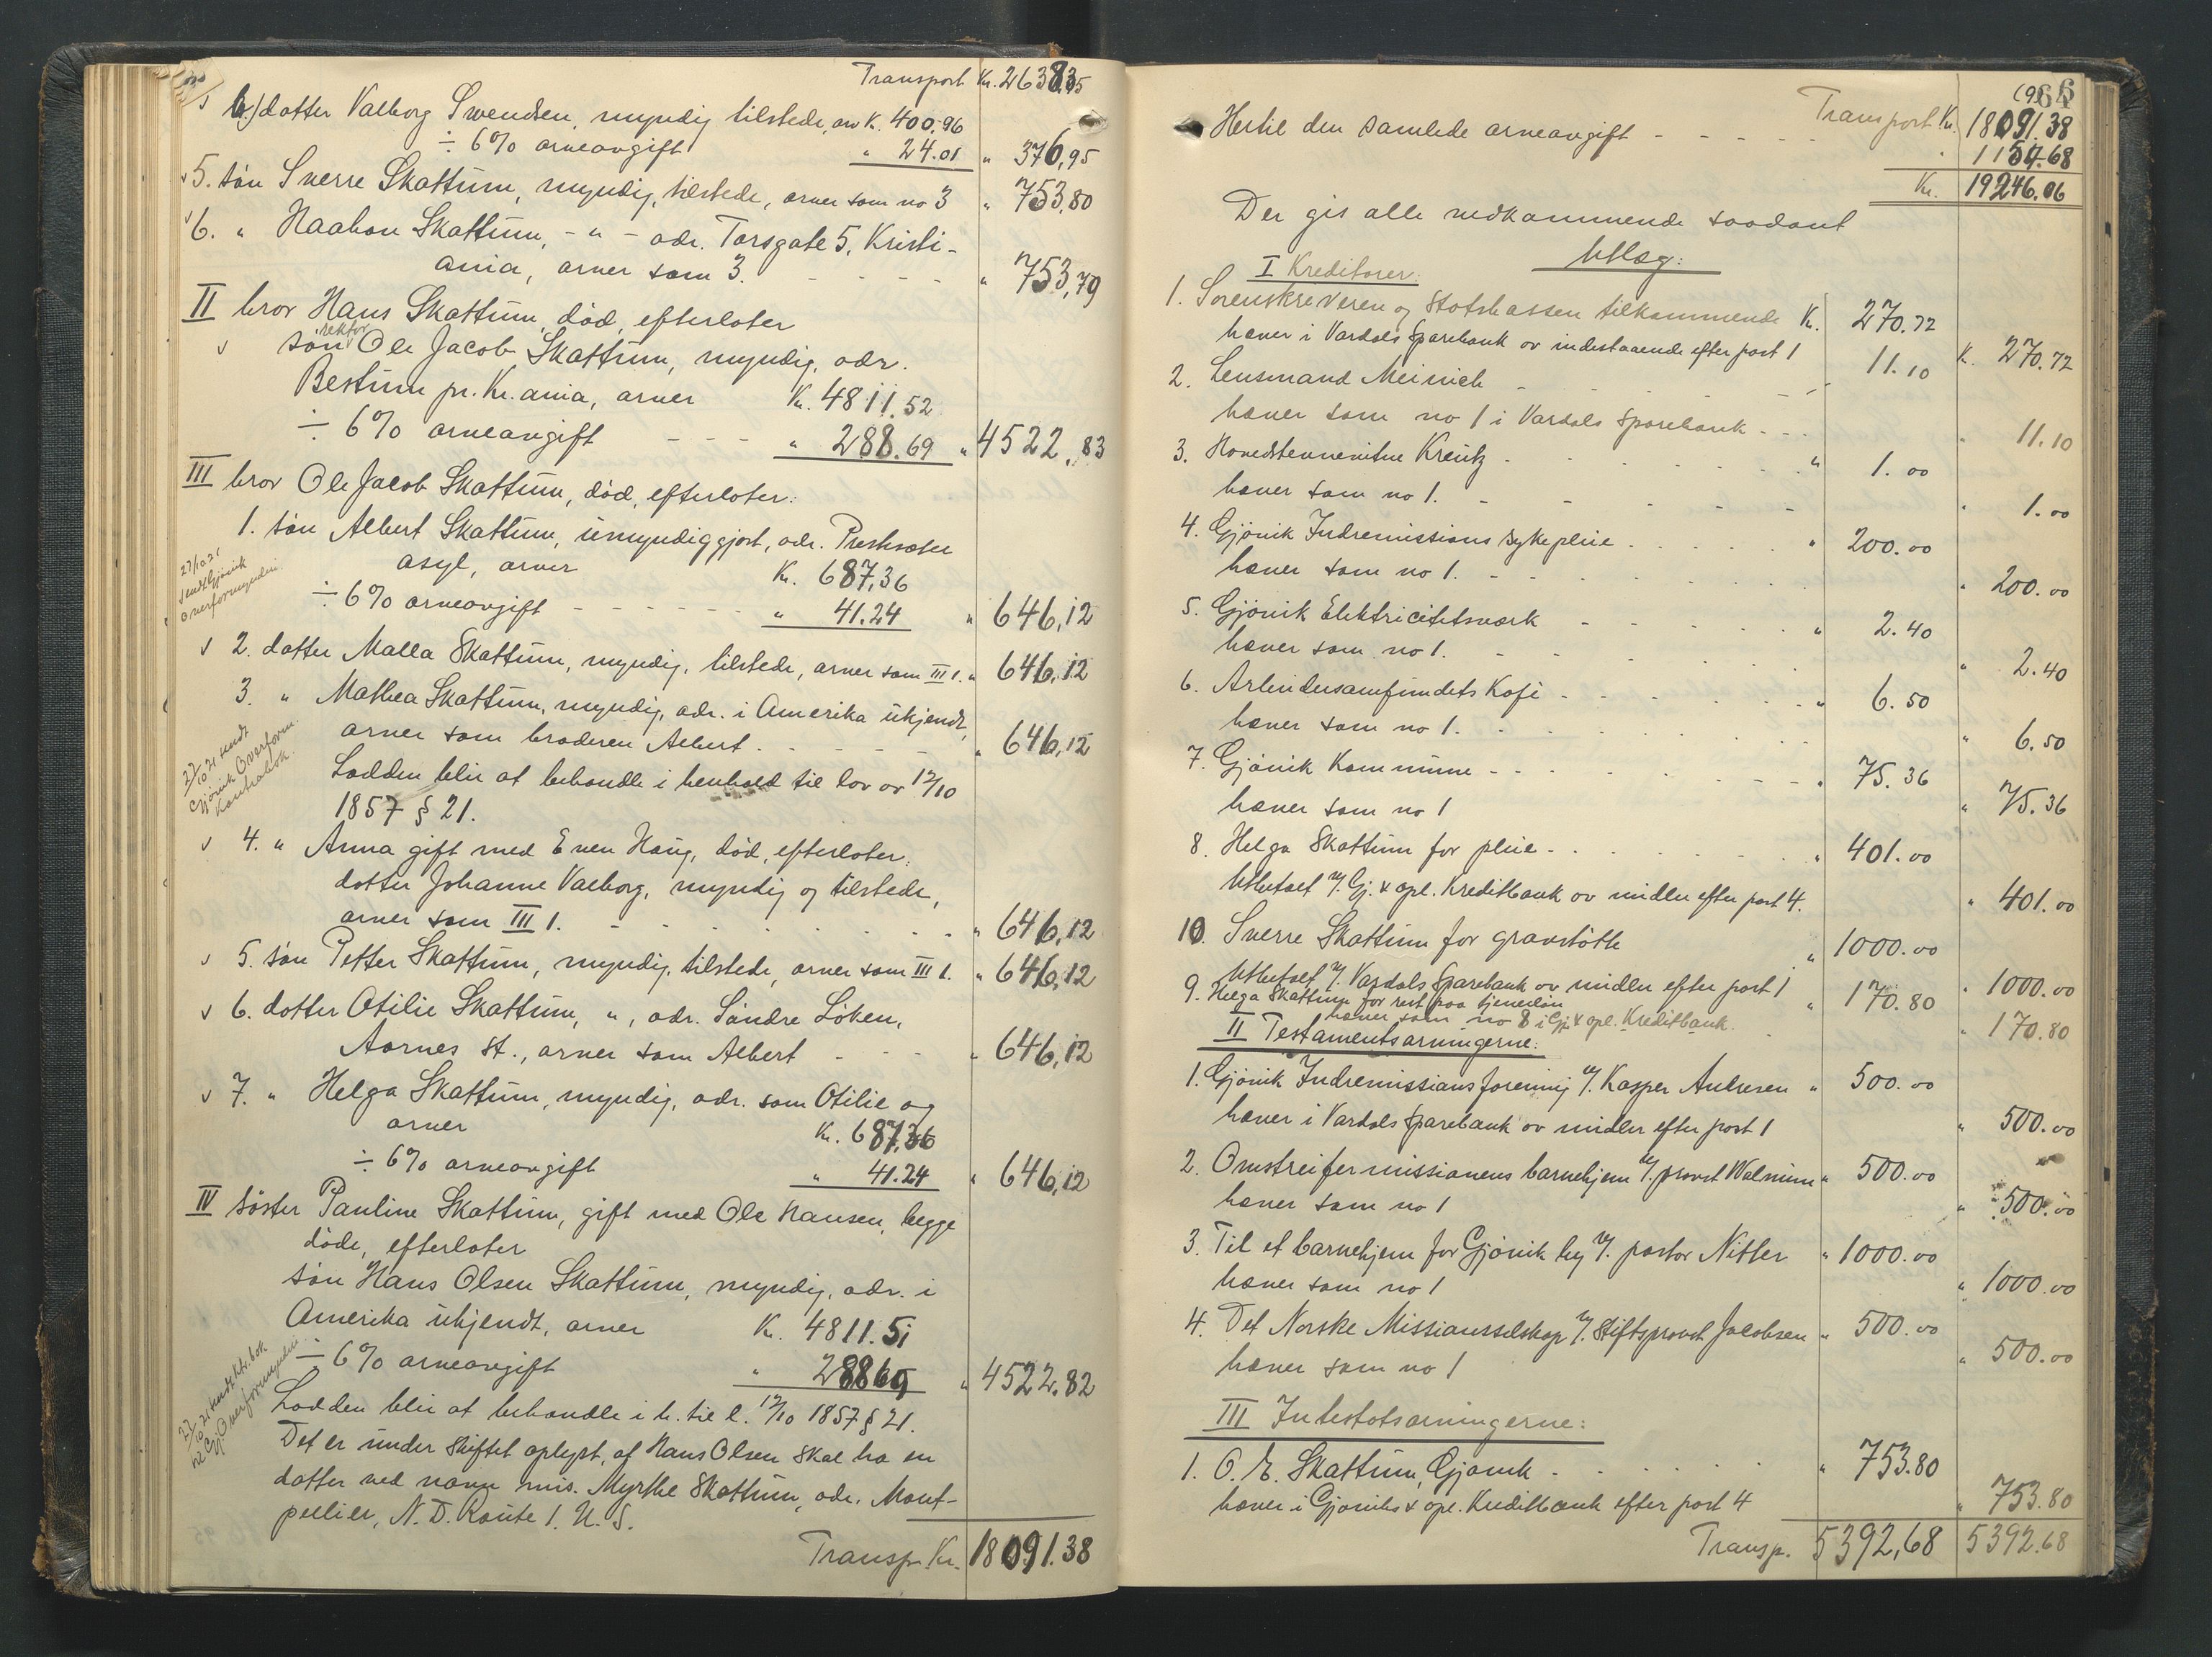 Transport Kr. 2638.35
b.) datter Valborg Swendsen, myndig tilstede, arv K. 400.96
÷ 6% arveavgift " 24.01 " 376,95
5. søn Sverre Skattum, myndig, tilstede, arver som no 3 " 753,80
6. " Haakon Skattum, - " - adr. Torsgate 5, Kristi-
ania, arver som 3. - - - - " 753,79
II bror Hans Skattum, død, efterlater
søn rektor Ole Jacob Skattum, myndig, adr.
Bestum pr. Kr.ania, arver Kr. 4811.52
÷ 6% arveavgift - - - " 288.69 " 4522.83
III bror Ole Jacob Skattum, død, efterlater:
1. søn Albert Skattum, umyndiggjort, adr. Prestesæter
asyl, arver Kr. 687,36
÷ 6% arveavgift - - - - - - " 41.24 " 646,12
27/10.21
sendt Gjøvik
overformynderi
2. datter Malla Skattum, myndig, tilstede, arver som III 1. " 646,12
3. " Mathea Skattum, myndig, adr. i Amerika ukjendt,
arver som broderen Albert. - - - - - " 646,12
Lodden blir at behandle i henhold til lov av 12/10
1857 § 21.
27/10 21 sendt
Gjøvik Overform.
Kontrabok.
4. " Anna gift med Even Haug, død, efterlater:
datter Johanne Valborg, myndig og tilstede,
arver som III 1. - - - - - - - - " 646,12
5. søn Petter Skattum, myndig, tilstede, arver som III 1. " 646,12
6. datter Otilie Skattum, ", adr. Søndre Løken,
Aarnes st., arver som Albert - - - " 646,12
7. " Helga Skattum, myndig, adr. som Otilie og
arver Kr. 687,36
÷ 6% arveavgift " 41.24 " 646,12
IV søster Pauline Skattum, gift med Ole Hansen, begge
døde, efterlater
søn Hans Olsen Skattum, myndig, adr. i
Amerika ukjendt, arver Kr. 4811.51
÷ 6% arveavgift " 288 69 " 4522.82
Lodden blir at behandle i h. til l. 12/10 1857 § 21.
27/10 21 sendt ktr.bok
Gj Overformynderi
Det er under skiftet oplyst, at Hans Olsen skal ha en
datter ved navn mis. Myrthe Skattum, adr. Mont-
pellier, N. D. Route 1. U. S.
Transp. Kr. 18091.38
64
Transport Kr. 18091.38
Hertil den samlede arveavgift - - - - " 1154.68
Kr. 19246.06
Der gis alle vedkommende saadant
Utlæg:
I Kreditorer:
1. Sorenskriveren og Statskassen tilkommende Kr. 270.72
hæver i Vardals Sparebank av indestaaende efter post 1 K. 270.72
2. Lensmand Meinich - - - - " 11.10
hæver som no 1 i Vardals Sparebank - - - " 11.10
3. Hovedstevnevitne Kreutz - - - - - " 1.00
hæver som no 1. - - - - - " 1.00
4. Gjøvik Indremissions sykepleie - - - - - " 200.00
hæver som no 1. - - - - - " 200.00
5. Gjøvik Elektricitetsværk - - - - - " 2.40
hæver som no 1. - - - - - " 2.40
6. Arbeidersamfundets Kafé - - - - - " 6.50
hæver som no 1. - - - - - " 6.50
7. Gjøvik Kommune - - - - - " 75.36
hæver som no 1 " 75.36
8. Helga Skattum for pleie - - - - - " 401.00
Utbetalt v/. Gj. & opl. Kreditbank av midler efter post 4. " 401.00
10. Sverre Skattum for gravstøtte " 1000.00
Utbetalt v/. Vardals Sparebank av midler efter post 1 " 1000.00
9. Helga Skattum for rest paa tjenerløn " 170.80
hæver som no 8 i Gj. & opl. Kreditbank. " 170.80
II Testamentsarvingerne:
1. Gjøvik Indremissionsforening v/. Kasper Andresen " 500.00
hæver i Vardals Sparebank av midler efter post 1 " 500.00
2. Omstreifermissionens barnehjem v/. provst Walnum " 500.00
hæver som no 1 " 500.00
3. Til et barnehjem for Gjøvik by v/. pastor Nitter " 1000.00
hæver som no 1 " 1000.00
4. Det Norske Missionsselskap v/. Stiftsprovst Jacobsen " 500.00
hæver som no 1 " 500.00
III Intestatsarvingerne:
1. O. E. Skattum, Gjøvik - - - - - " 753.80
hæver i Gjøviks & opl. Kreditbank efter post 4 " 753.80
Transp. 5392,68 5392.68